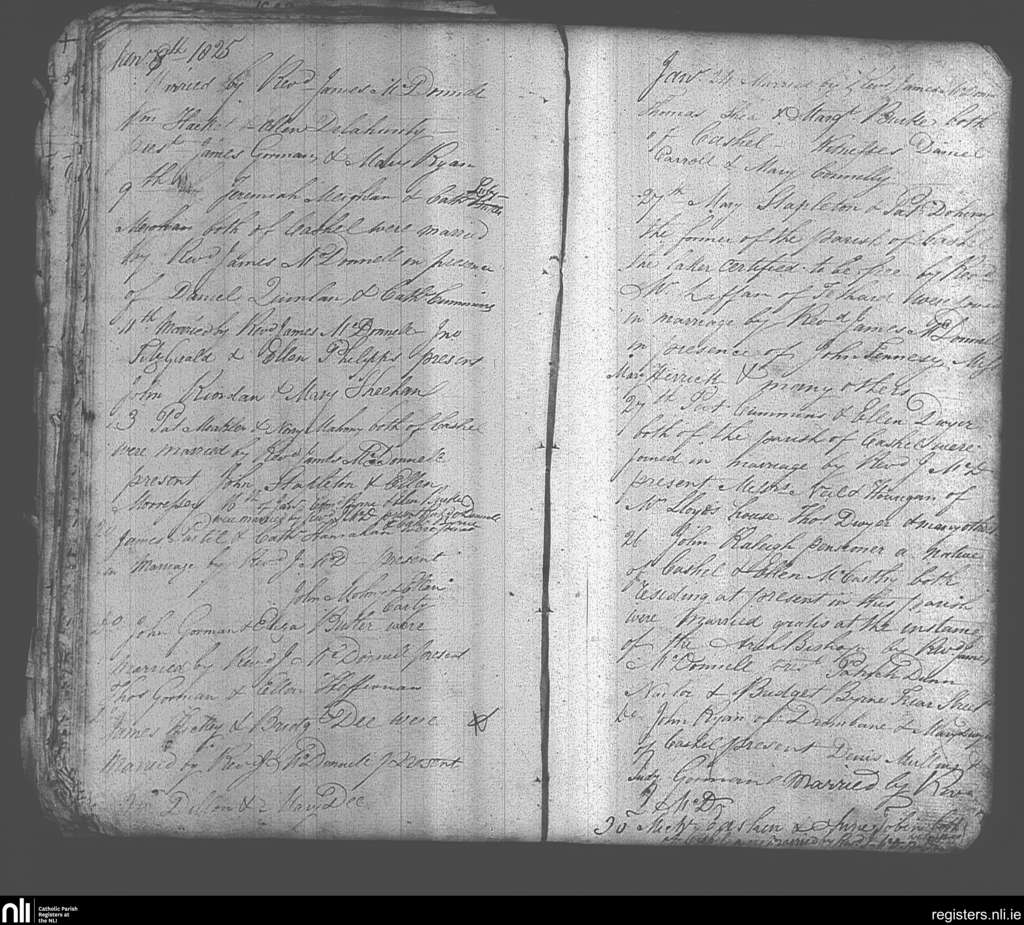 Jany 8th 1825
Married by Revd James McDonnell
Wm Hacket & Ellen Delahunty
prest James Gorman & Mary Ryan
9th Jeremiah Meighan & Cath
Meighan both of Cashel were married
by Revd James McDonnell in presence
of Daniel Quinlan & Cath Cummins
11th Married by Revd James McDonnell Jno
FitzGerald & Ellen Phelpps present
John Rindan & Mary Sheehan
3 Pat Meahler & Nory Mahony both of Cashel
were married by Revd James McDonnell
present John Stapleton & Ellen
Morressy 16th of Jany
were married by Revd J McD
James & Cath Hanrahan
in Marriage by Revd J. McD - present
John & Ellen
Carty
John Gorman & Eliza Butler were
married by Revd J. McDonnell present
Thos Gorman & Ellen Heffernan
James Hickey & Bridgt Dee were
Married by Revd J McDonnell present
Dillon & Mary Dee
Jany 24 Married by Revd James McDonnell
Thomas Shea & Margt Burke both
of Cashel - Witnesses Daniel
Carroll & Mary Connelly
27th Mary Stapleton & Pat Doheny
the former of the parish of Cashel
the latter certified to be free by Revd
Mr Laffan of Fethard were joined
in marriage by Revd James McDonnell
in presence of John Fennesy, Miss
Mary Herrick & many others
27th Pat Cummins & Ellen Dwyer
both of the parish of Cashel were
joined in marriage by Revd J. McD
present Messrs Neil & Hourigan of
Mr Lloyds house Thos Dwyer & many others
26 John Raleigh pensioner a native
of Cashel & Ellen McCarthy both
residing at present in this parish
were married gratis at the instance
of the ArchBishop by Revd James
McDonnell prest Patrick Dunn
Nailor & Bridget Byrne Friar Street
do John Ryan of Drumbane & Mary Dwyer
of Cashel present Denis Mullins &
Judy Gorman Married by Revd
J McD
30 & June Tobin both
nli Catholic Parish
Registers at
the NLI
registers.nli.ie